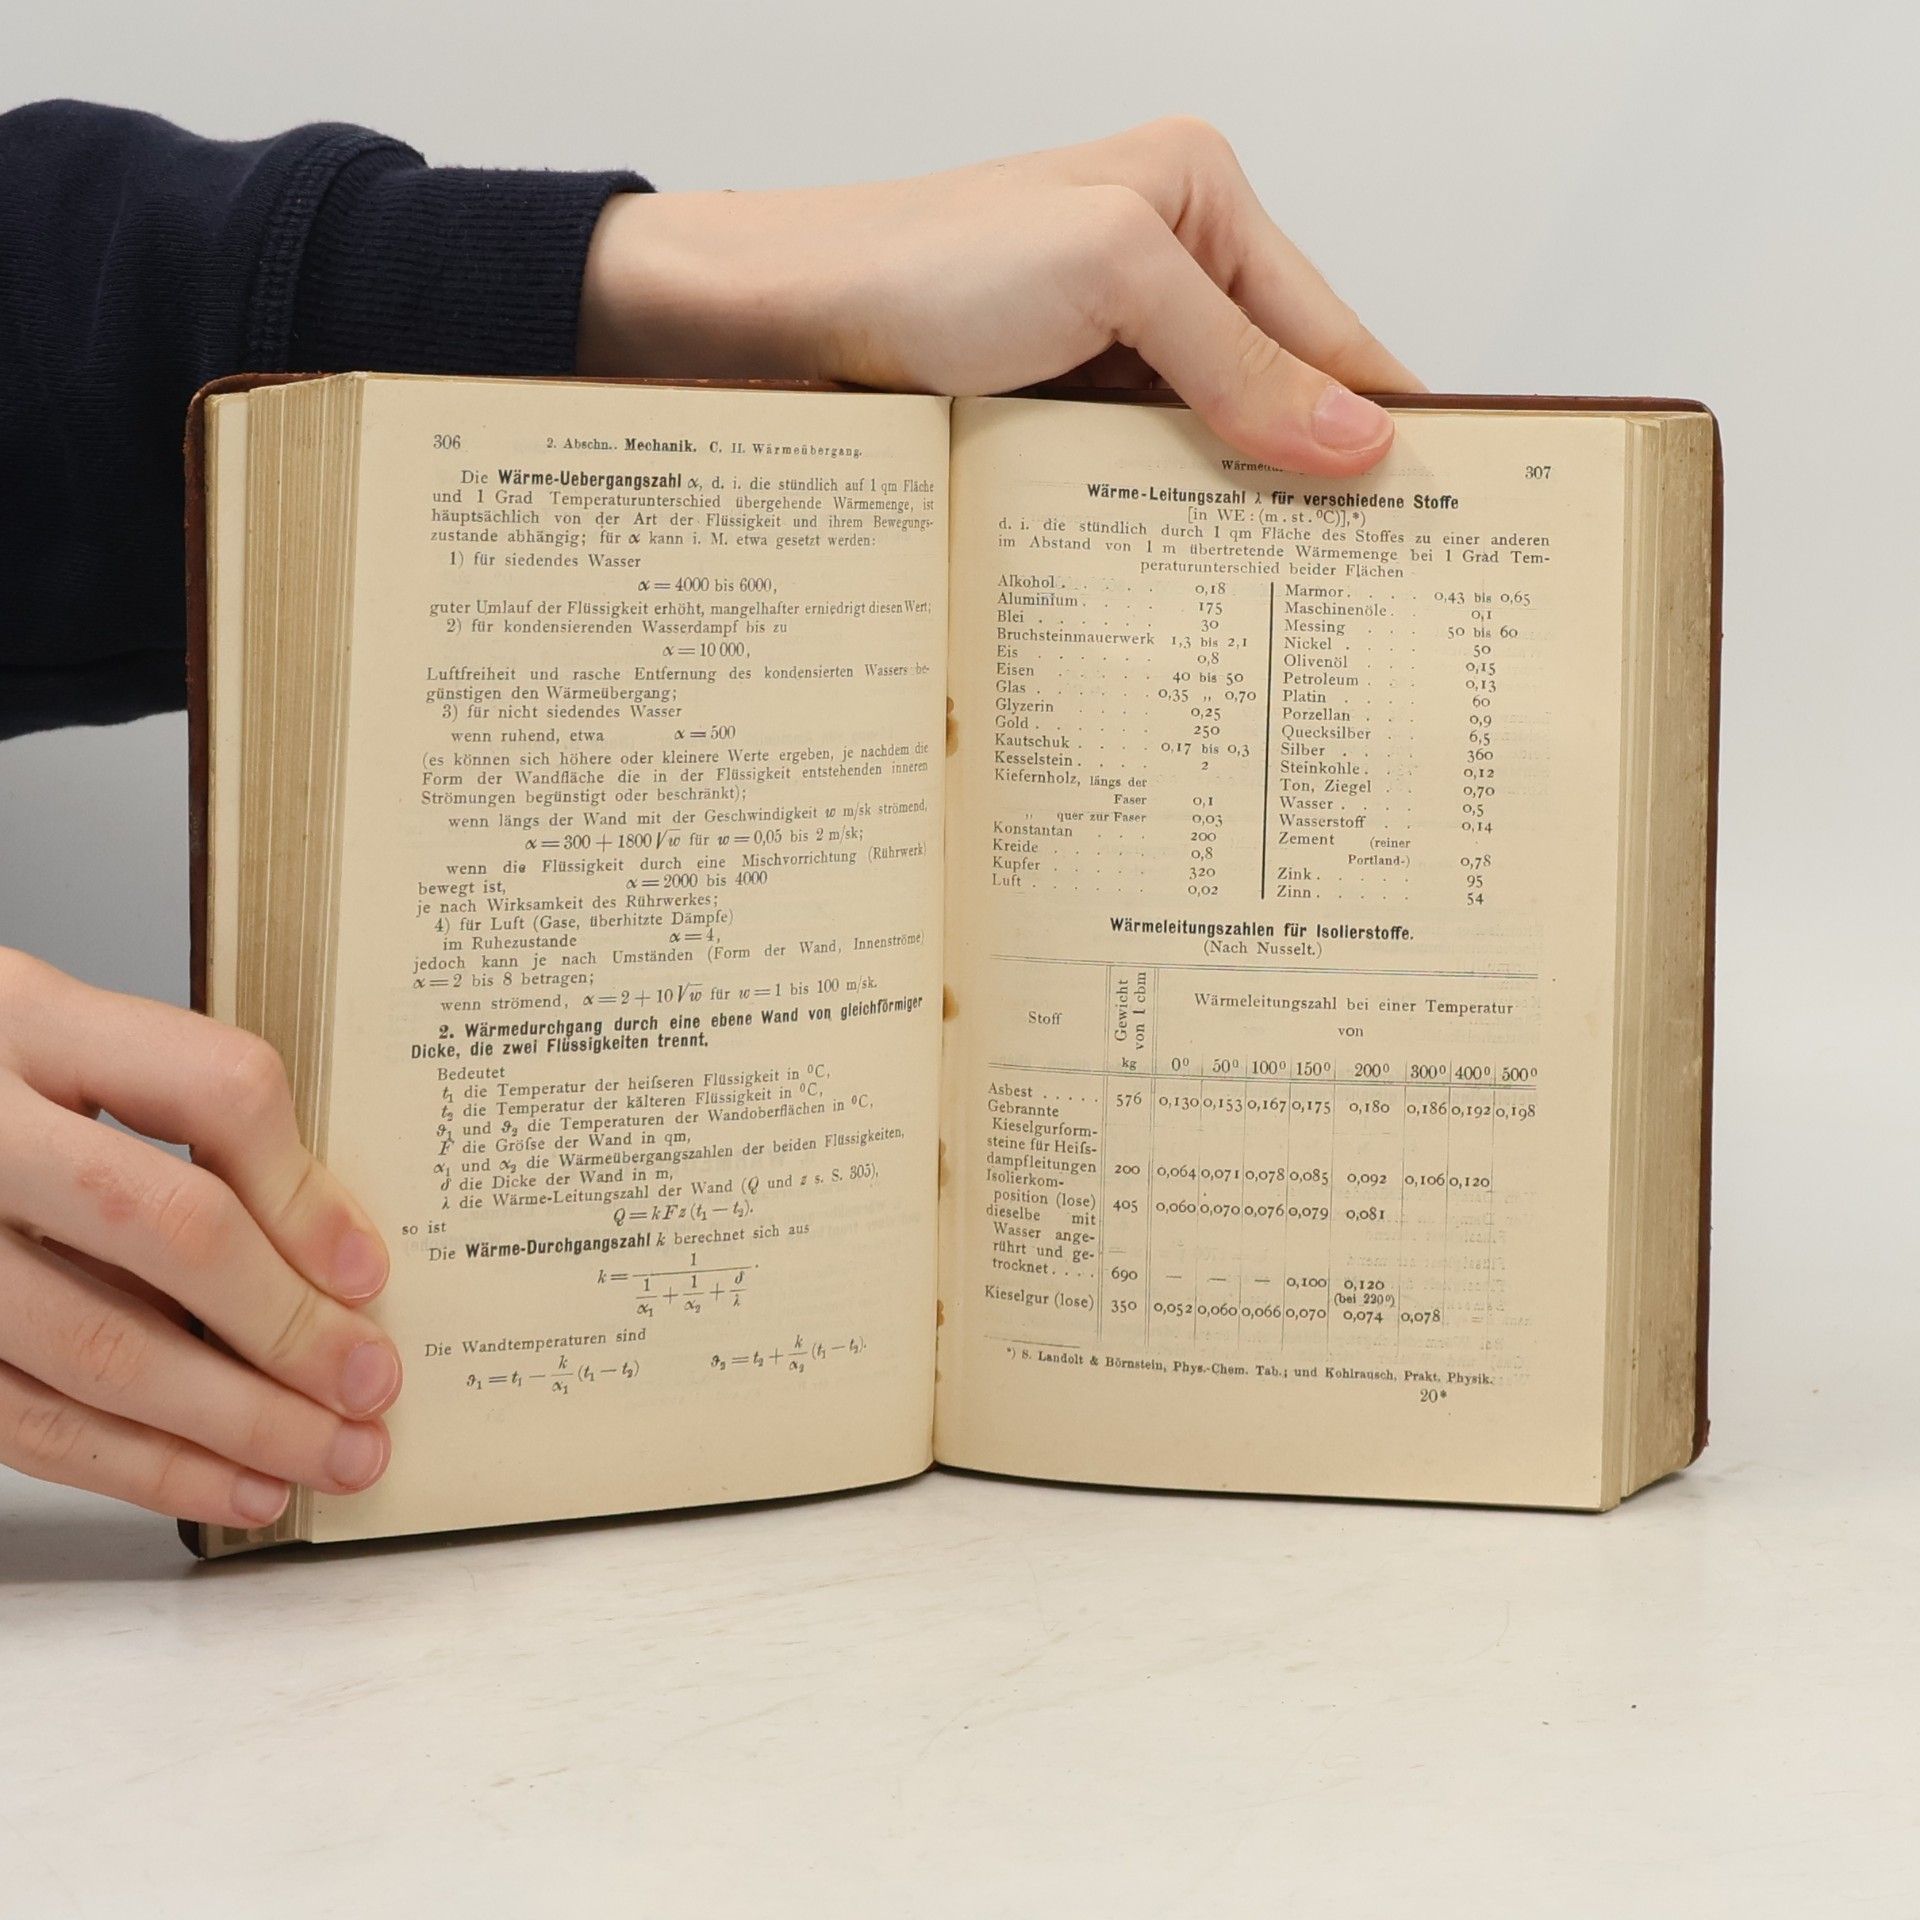 306 2. Abschn.. Mechanik. C. II. Wärmeübergang.
Die Wärme-Uebergangszahl α, d. i. die stündlich auf 1 qm Fläche
und 1 Grad Temperaturunterschied übergehende Wärmemenge, ist
hauptsächlich von der Art der Flüssigkeit und ihrem Bewegungs-
zustande abhängig; für α kann i. M. etwa gesetzt werden:
1) für siedendes Wasser
α = 4000 bis 6000,
guter Umlauf der Flüssigkeit erhöht, mangelhafter erniedrigt diesen Wert;
2) für kondensierenden Wasserdampf bis zu
α = 10 000,
Luftfreiheit und rasche Entfernung des kondensierten Wassers be-
günstigen den Wärmeübergang;
3) für nicht siedendes Wasser
wenn ruhend, etwa α = 500
(es können sich höhere oder kleinere Werte ergeben, je nachdem die
Form der Wandfläche die in der Flüssigkeit entstehenden inneren
Strömungen begünstigt oder beschränkt);
wenn längs der Wand mit der Geschwindigkeit w m/sk strömend,
α = 300 + 1800 √w für w = 0,05 bis 2 m/sk;
wenn die Flüssigkeit durch eine Mischvorrichtung (Rührwerk)
bewegt ist, α = 2000 bis 4000
je nach Wirksamkeit des Rührwerkes;
4) für Luft (Gase, überhitzte Dämpfe)
im Ruhezustande α = 4,
jedoch kann je nach Umständen (Form der Wand, Innenströme)
α = 2 bis 8 betragen;
wenn strömend, α = 2 + 10 √w für w = 1 bis 100 m/sk.
2. Wärmedurchgang durch eine ebene Wand von gleichförmiger
Dicke, die zwei Flüssigkeiten trennt.
Bedeutet
t₁ die Temperatur der heifseren Flüssigkeit in ⁰C,
t₂ die Temperatur der kälteren Flüssigkeit in ⁰C,
ϑ₁ und ϑ₂ die Temperaturen der Wandoberflächen in ⁰C,
F die Gröfse der Wand in qm,
α₁ und α₂ die Wärmeübergangszahlen der beiden Flüssigkeiten,
δ die Dicke der Wand in m,
λ die Wärme-Leitungszahl der Wand (Q und z s. S. 305),
so ist Q = k F z (t₁ − t₂).
Die Wärme-Durchgangszahl k berechnet sich aus
k = 1 / (1/α₁ + 1/α₂ + δ/λ).
Die Wandtemperaturen sind
ϑ₁ = t₁ − k/α₁ (t₁ − t₂) ϑ₂ = t₂ + k/α₂ (t₁ − t₂).
307
Wärme-Leitungszahl λ für verschiedene Stoffe
[in WE : (m . st . ⁰C)],*)
d. i. die stündlich durch 1 qm Fläche des Stoffes zu einer anderen
im Abstand von 1 m übertretende Wärmemenge bei 1 Grad Tem-
peraturunterschied beider Flächen
Alkohol . . . . . 0,18
Aluminium . . . . 175
Blei . . . . . . 30
Bruchsteinmauerwerk 1,3 bis 2,1
Eis . . . . . . 0,8
Eisen . . . . . 40 bis 50
Glas . . . . . . 0,35 „ 0,70
Glyzerin . . . . 0,25
Gold . . . . . . 250
Kautschuk . . . . 0,17 bis 0,3
Kesselstein . . . . 2
Kiefernholz, längs der
Faser 0,1
„ quer zur Faser 0,03
Konstantan . . . 200
Kreide . . . . . 0,8
Kupfer . . . . . 320
Luft . . . . . . 0,02
Marmor . . . . 0,43 bis 0,65
Maschinenöle . . 0,1
Messing . . . 50 bis 60
Nickel . . . . 50
Olivenöl . . . 0,15
Petroleum . . . 0,13
Platin . . . . 60
Porzellan . . . 0,9
Quecksilber . . 6,5
Silber . . . . 360
Steinkohle . . . 0,12
Ton, Ziegel . . 0,70
Wasser . . . . 0,5
Wasserstoff . . 0,14
Zement (reiner
Portland-) 0,78
Zink . . . . . 95
Zinn . . . . . 54
Wärmeleitungszahlen für Isolierstoffe.
(Nach Nusselt.)
Stoff Gewicht von 1 cbm Wärmeleitungszahl bei einer Temperatur
von
kg 0⁰ 50⁰ 100⁰ 150⁰ 200⁰ 300⁰ 400⁰ 500⁰
Asbest . . . . . 576 0,130 0,153 0,167 0,175 0,180 0,186 0,192 0,198
Gebrannte
Kieselgurform-
steine für Heifs-
dampfleitungen 200 0,064 0,071 0,078 0,085 0,092 0,106 0,120
Isolierkom-
position (lose) 405 0,060 0,070 0,076 0,079 0,081
dieselbe mit
Wasser ange-
rührt und ge-
trocknet . . . . 690 — — — 0,100 0,120
(bei 220⁰)
Kieselgur (lose) 350 0,052 0,060 0,066 0,070 0,074 0,078
*) S. Landolt & Börnstein, Phys.-Chem. Tab.; und Kohlrausch, Prakt. Physik.
20*